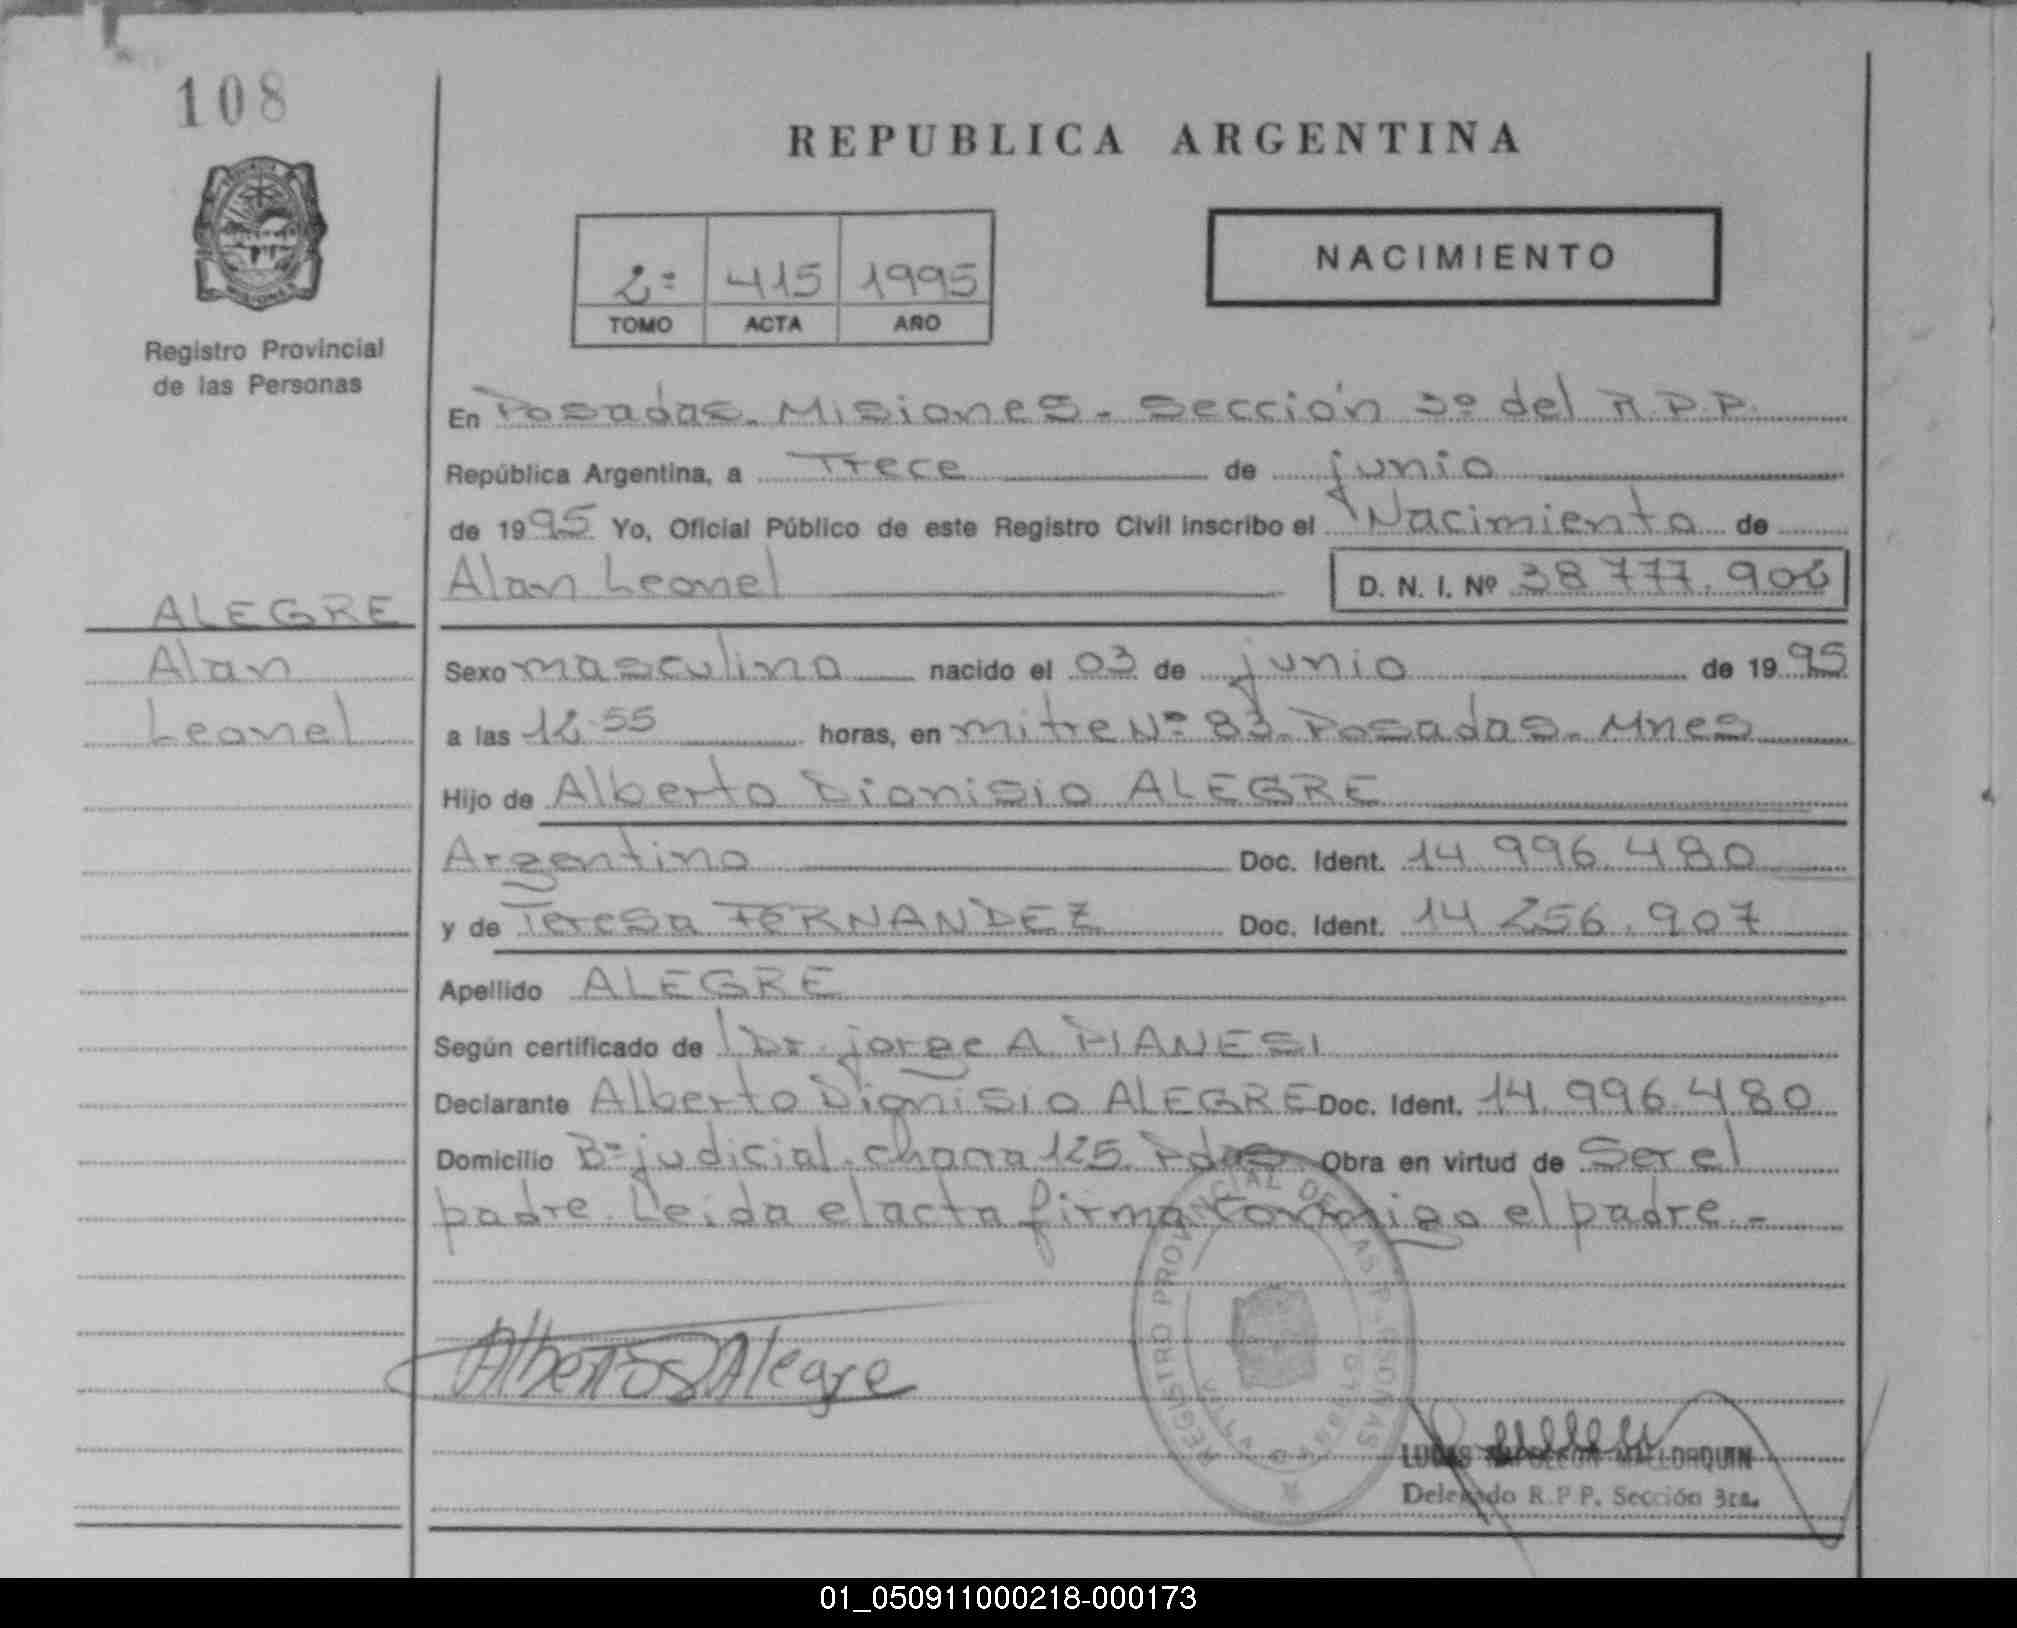 108
REPUBLICA ARGENTINA
NACIMIENTO
2º 415 1995
TOMO ACTA AÑO
Registro Provincial
de las Personas
En Posadas. Misiones. Sección 3º del R.P.P.
República Argentina, a Trece de junio
de 1995 Yo, Oficial Público de este Registro Civil inscribo el Nacimiento de
Alan Leonel D. N. I. Nº 38 777.906
ALEGRE
Alan
Leonel
Sexo masculino nacido el 03 de junio de 1995
a las 12.55 horas, en mitre Nº 83. Posadas. Mnes
Hijo de Alberto Dionisio ALEGRE
Argentino Doc. Ident. 14 996.480
y de Teresa FERNANDEZ Doc. Ident. 14 256.907
Apellido ALEGRE
Según certificado de Dr. jorge A PIANESI
Declarante Alberto Dionisio ALEGRE Doc. Ident. 14.996.480
Domicilio Bº judicial. chana 125. Pdas Obra en virtud de Ser el
padre. Leida el acta firma conmigo el padre.-
REGISTRO PROVINCIAL DE LAS PERSONAS
Alberto Alegre
LUCAS NAPOLEON MALLORQUIN
Delegado R.P.P. Sección 3ra.
01_050911000218-000173